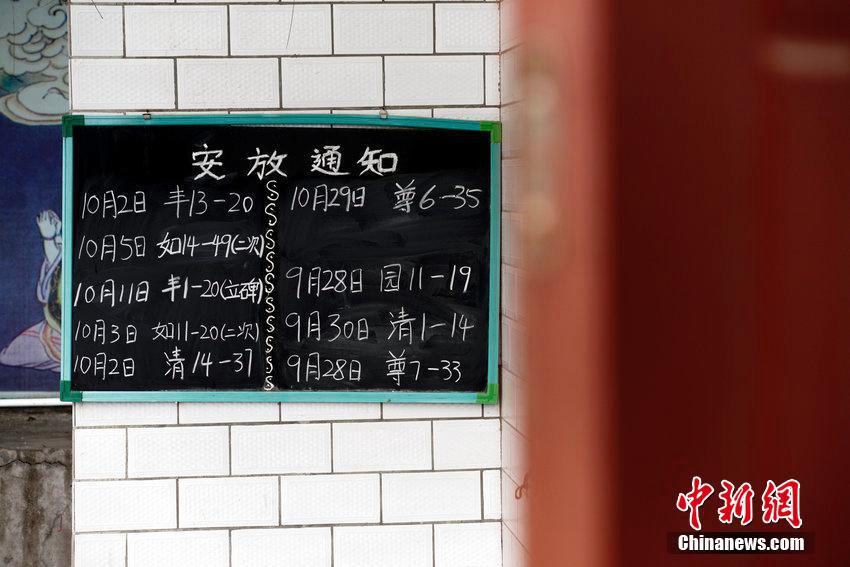 安放通知
10月2日 丰13-20
10月5日 如14-49(二次)
10月11日 丰1-20(立碑)
10月3日 如11-20(二次)
10月2日 清14-37
10月29日 尊6-35
9月28日 园11-19
9月30日 清1-14
9月28日 尊7-33
中新网
Chinanews.com